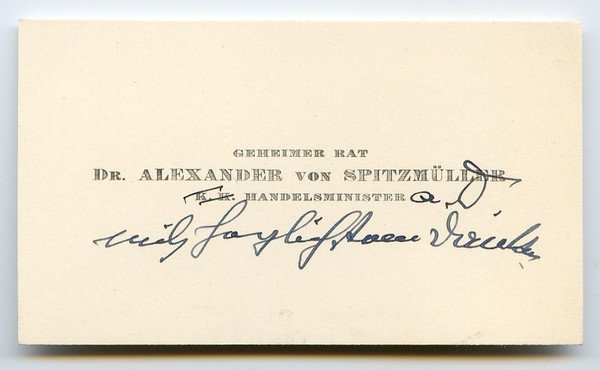 GEHEIMER RAT
DR. ALEXANDER VON SPITZMÜLLER
K. K. HANDELSMINISTER a. D.
mit herzlichstem Danke